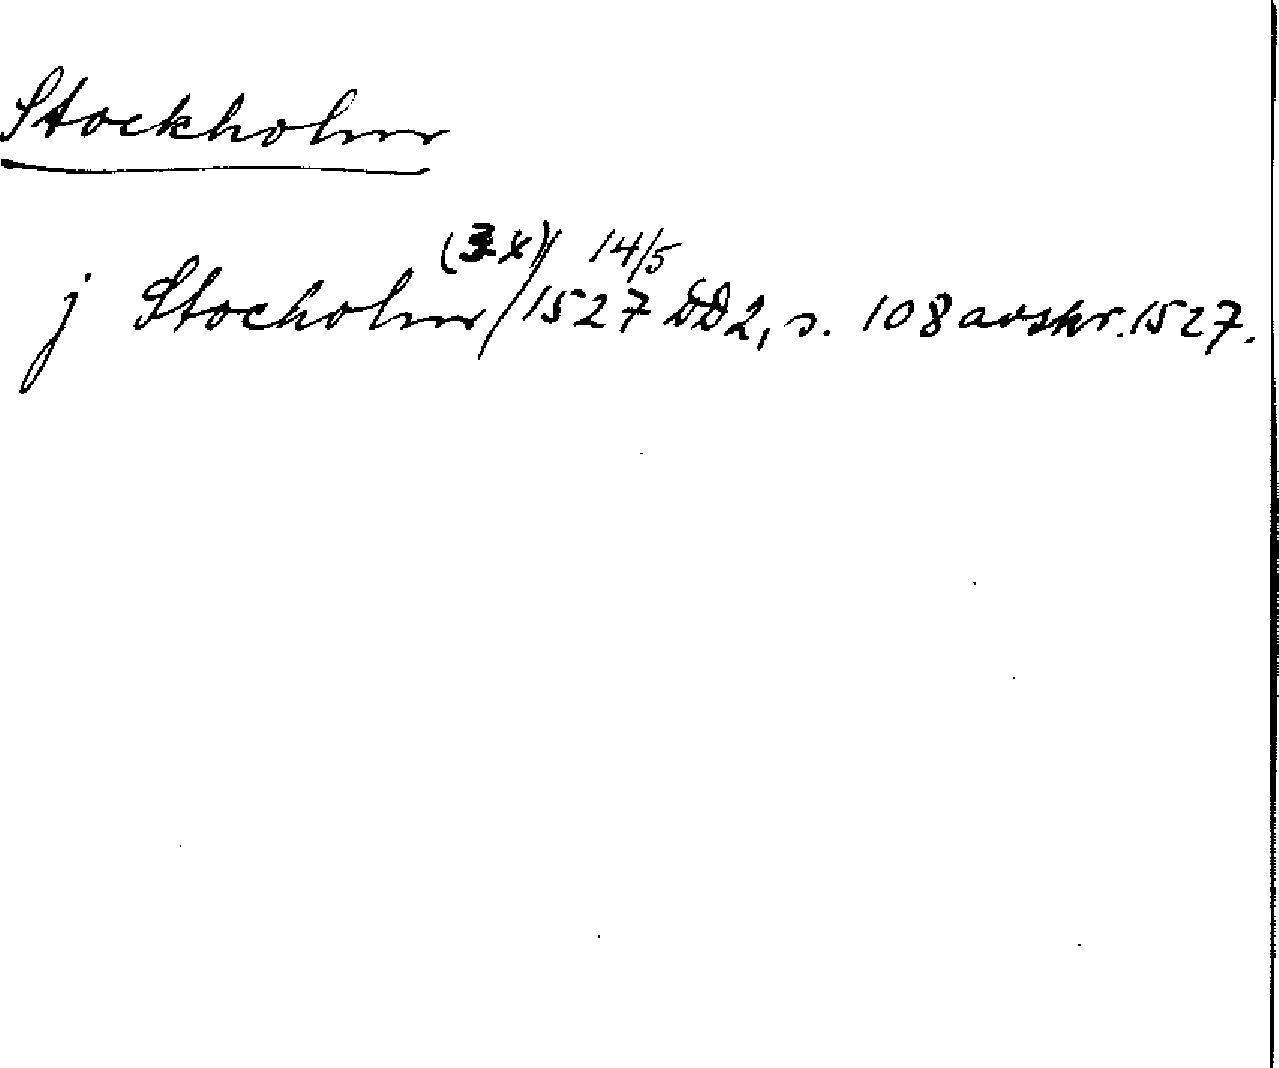 Stockholm
(3x) 14/5
j Stocholm / 1527 DD2, s. 108 avskr. 1527.